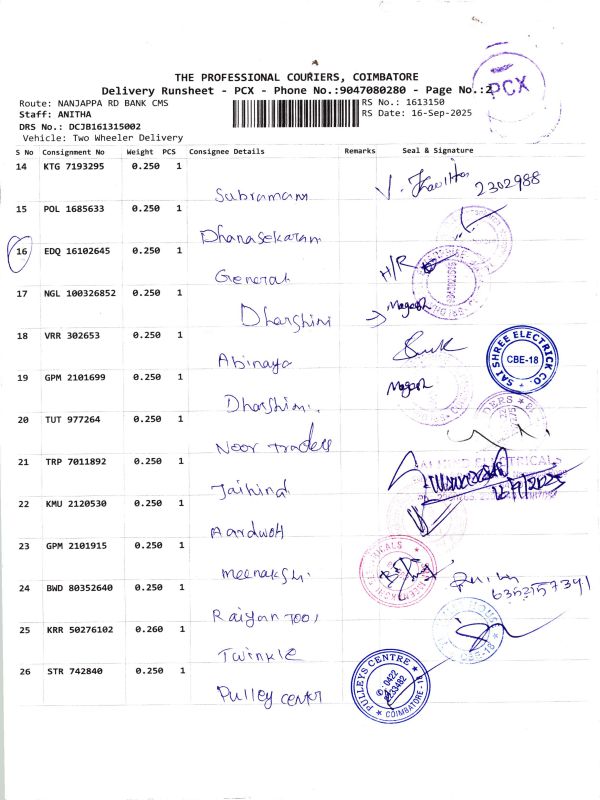 THE PROFESSIONAL COURIERS, COIMBATORE
Delivery Runsheet - PCX - Phone No.:9047080280 - Page No.:2
PCX
Route: NANJAPPA RD BANK CMS
RS No.: 1613150
Staff: ANITHA
RS Date: 16-Sep-2025
DRS No.: DCJB161315002
Vehicle: Two Wheeler Delivery
S No Consignment No Weight PCS Consignee Details Remarks Seal & Signature
14 KTG 7193295 0.250 1
Subramani 2302988
15 POL 1685633 0.250 1
Dhanasekaram
16 EDQ 16102645 0.250 1
General H/R
17 NGL 100326852 0.250 1
Dharshini Magesh
18 VRR 302653 0.250 1
Abinaya
SAI SHREE ELECTRICK CO. CBE-18
19 GPM 2101699 0.250 1
Dharshini. Magesh
20 TUT 977264 0.250 1
Noor Traders
21 TRP 7011892 0.250 1
Jaihind
22 KMU 2120530 0.250 1
Aardwolf
23 GPM 2101915 0.250 1
meenakshi
24 BWD 80352640 0.250 1
Raiyan Tool
6353157391
25 KRR 50276102 0.260 1
Twinkle
CBE-18
26 STR 742840 0.250 1
Pulley center
PULLEYS CENTRE
0422
COIMBATORE